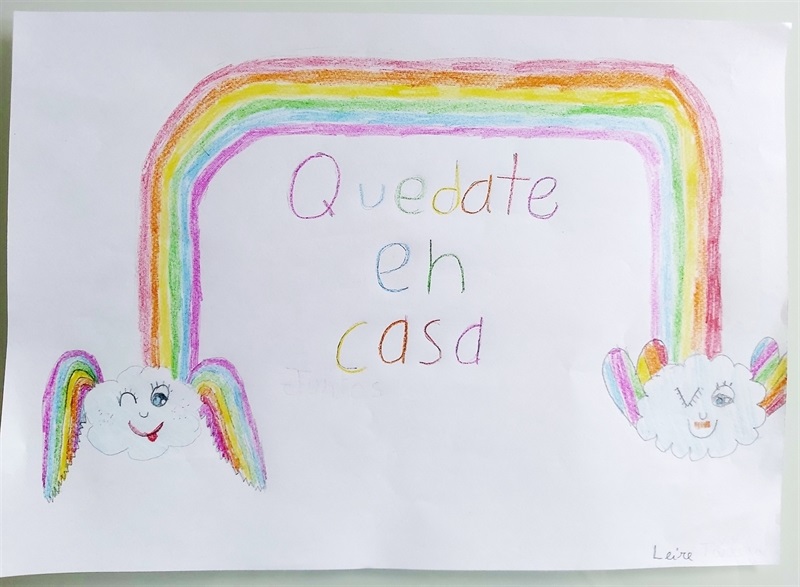 Quedate
en
casa
Leire